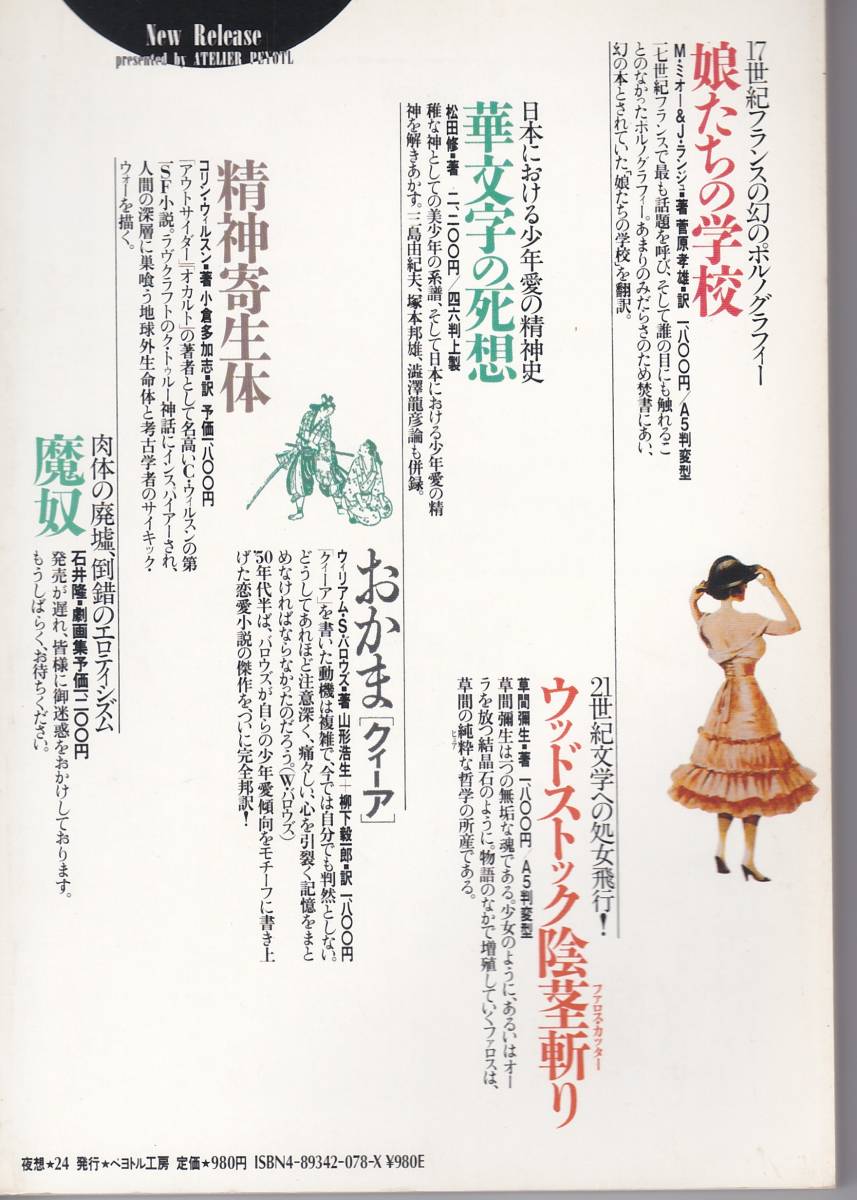 New Release
presented by ATELIER PEYOTL
17世紀フランスの幻のポルノグラフィー
娘たちの学校
M・ミオー&J・ランジュ■著 菅原孝雄■訳 一八〇〇円/A5判変型
一七世紀フランスで最も話題を呼び、そして誰の目にも触れるこ
とのなかったポルノグラフィー。あまりのみだらさのため焚書にあい、
幻の本とされていた「娘たちの学校」を翻訳。
日本における少年愛の精神史
華文字の死想
松田修■著 二、二〇〇円/四六判上製
稚な神としての美少年の系譜、そして日本における少年愛の精
神を解きあかす。三島由紀夫、塚本邦雄、澁澤龍彦論も併録。
精神寄生体
コリン・ウィルスン■著 小倉多加志■訳 予価一、八〇〇円
「アウトサイダー」『オカルト』の著者として名高いC・ウィルスンの第
一SF小説。ラヴクラフトのク・トゥルー神話にインスパイアーされ、
人間の深層に巣喰う地球外生命体と考古学者のサイキック・
ウォーを描く。
21世紀文学への処女飛行!
ウッドストック陰茎斬り
ファロス・カッター
草間彌生■著 一八〇〇円/A5判変型
草間彌生は一つの無垢な魂である。少女のように、あるいはオー
ラを放つ結晶石のように。物語のなかで増殖していくファロスは、
草間の純粋な哲学の所産である。
ピュア
おかま[クィーア]
ウィリアム・S・バロウズ■著 山形浩生+柳下毅一郎■訳 一八〇〇円
「クィーア」を書いた動機は複雑で、今では自分でも判然としない。
どうしてあれほど注意深く、痛々しい、心を引裂く記憶をまと
めなければならなかったのだろう。(W・バロウズ)
'50年代半ば、バロウズが自らの少年愛傾向をモチーフに書き上
げた恋愛小説の傑作を、ついに完全邦訳!
肉体の廃墟、倒錯のエロティシズム
魔奴
石井隆■劇画集予価一、二〇〇円
発売が遅れ、皆様に御迷惑をおかけしております。
もうしばらく、お待ちください。
夜想★24 発行★ペヨトル工房 定価★980円 ISBN4-89342-078-X ¥980E